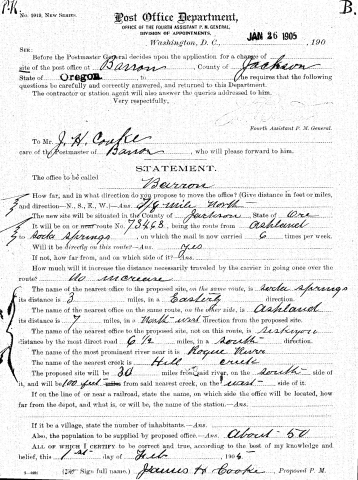 P.K.
B.
No. 1013, New Series.
Post Office Department,
OFFICE OF THE FOURTH ASSISTANT P. M. GENERAL,
DIVISION OF APPOINTMENTS,
Washington, D. C., JAN 26 1905 , 190
SIR:
Before the Postmaster General decides upon the application for a change of
site of the post office at Barron, County of Jackson
State of Oregon, he requires that the following
questions be carefully and correctly answered, and returned to this Department.
The contractor or station agent will also answer the queries addressed to him.
Very respectfully,
Fourth Assistant P. M. General.
To Mr. J. H. Cooke
care of the Postmaster of Barron, who will please forward to him.
STATEMENT.
The office to be called
Barron
How far, and in what direction do you propose to move the office? (Give distance in feet or miles,
and direction—N., S., E., W.)—Ans. mile North
The new site will be situated in the County of Jackson, State of Ore
It will be on or route No. 73468, being the route from Ashland
to Soda Springs, on which the mail is now carried 6 times per week.
Will it be directly on this route?—Ans. yes
If not, how far from, and on which side of it?—Ans.
How much will it increase the distance necessarily traveled by the carrier in going once over the
route? No increase
The name of the nearest office to the proposed site, on the same route, is Soda Springs
its distance is 3 miles, in a Easterly direction.
The name of the nearest office on the same route, on the other side, is Ashland
its distance is 7 miles, in a North-west direction from the proposed site.
The name of the nearest office to the proposed site, not on this route, is Siskiyou
distance by the most direct road 6 1/2 miles, in a South direction.
The name of the most prominent river near it is Rogue River
The name of the nearest creek is Hill creek
The proposed site will be 30 miles from said river, on the South side of
it, and will be 100 feet from said nearest creek, on the west side of it.
If on the line of or near a railroad, state the name, on which side the office will be located, how
far from the depot, and what is, or will be, the name of the station.—Ans.
If it be a village, state the number of inhabitants.—Ans.
Also, the population to be supplied by proposed office.—Ans. About 50
ALL OF WHICH I CERTIFY to be correct and true, according to the best of my knowledge and
belief, this 1st day of Feb, 1905
Sign full name.) James H Cooke Proposed P. M.